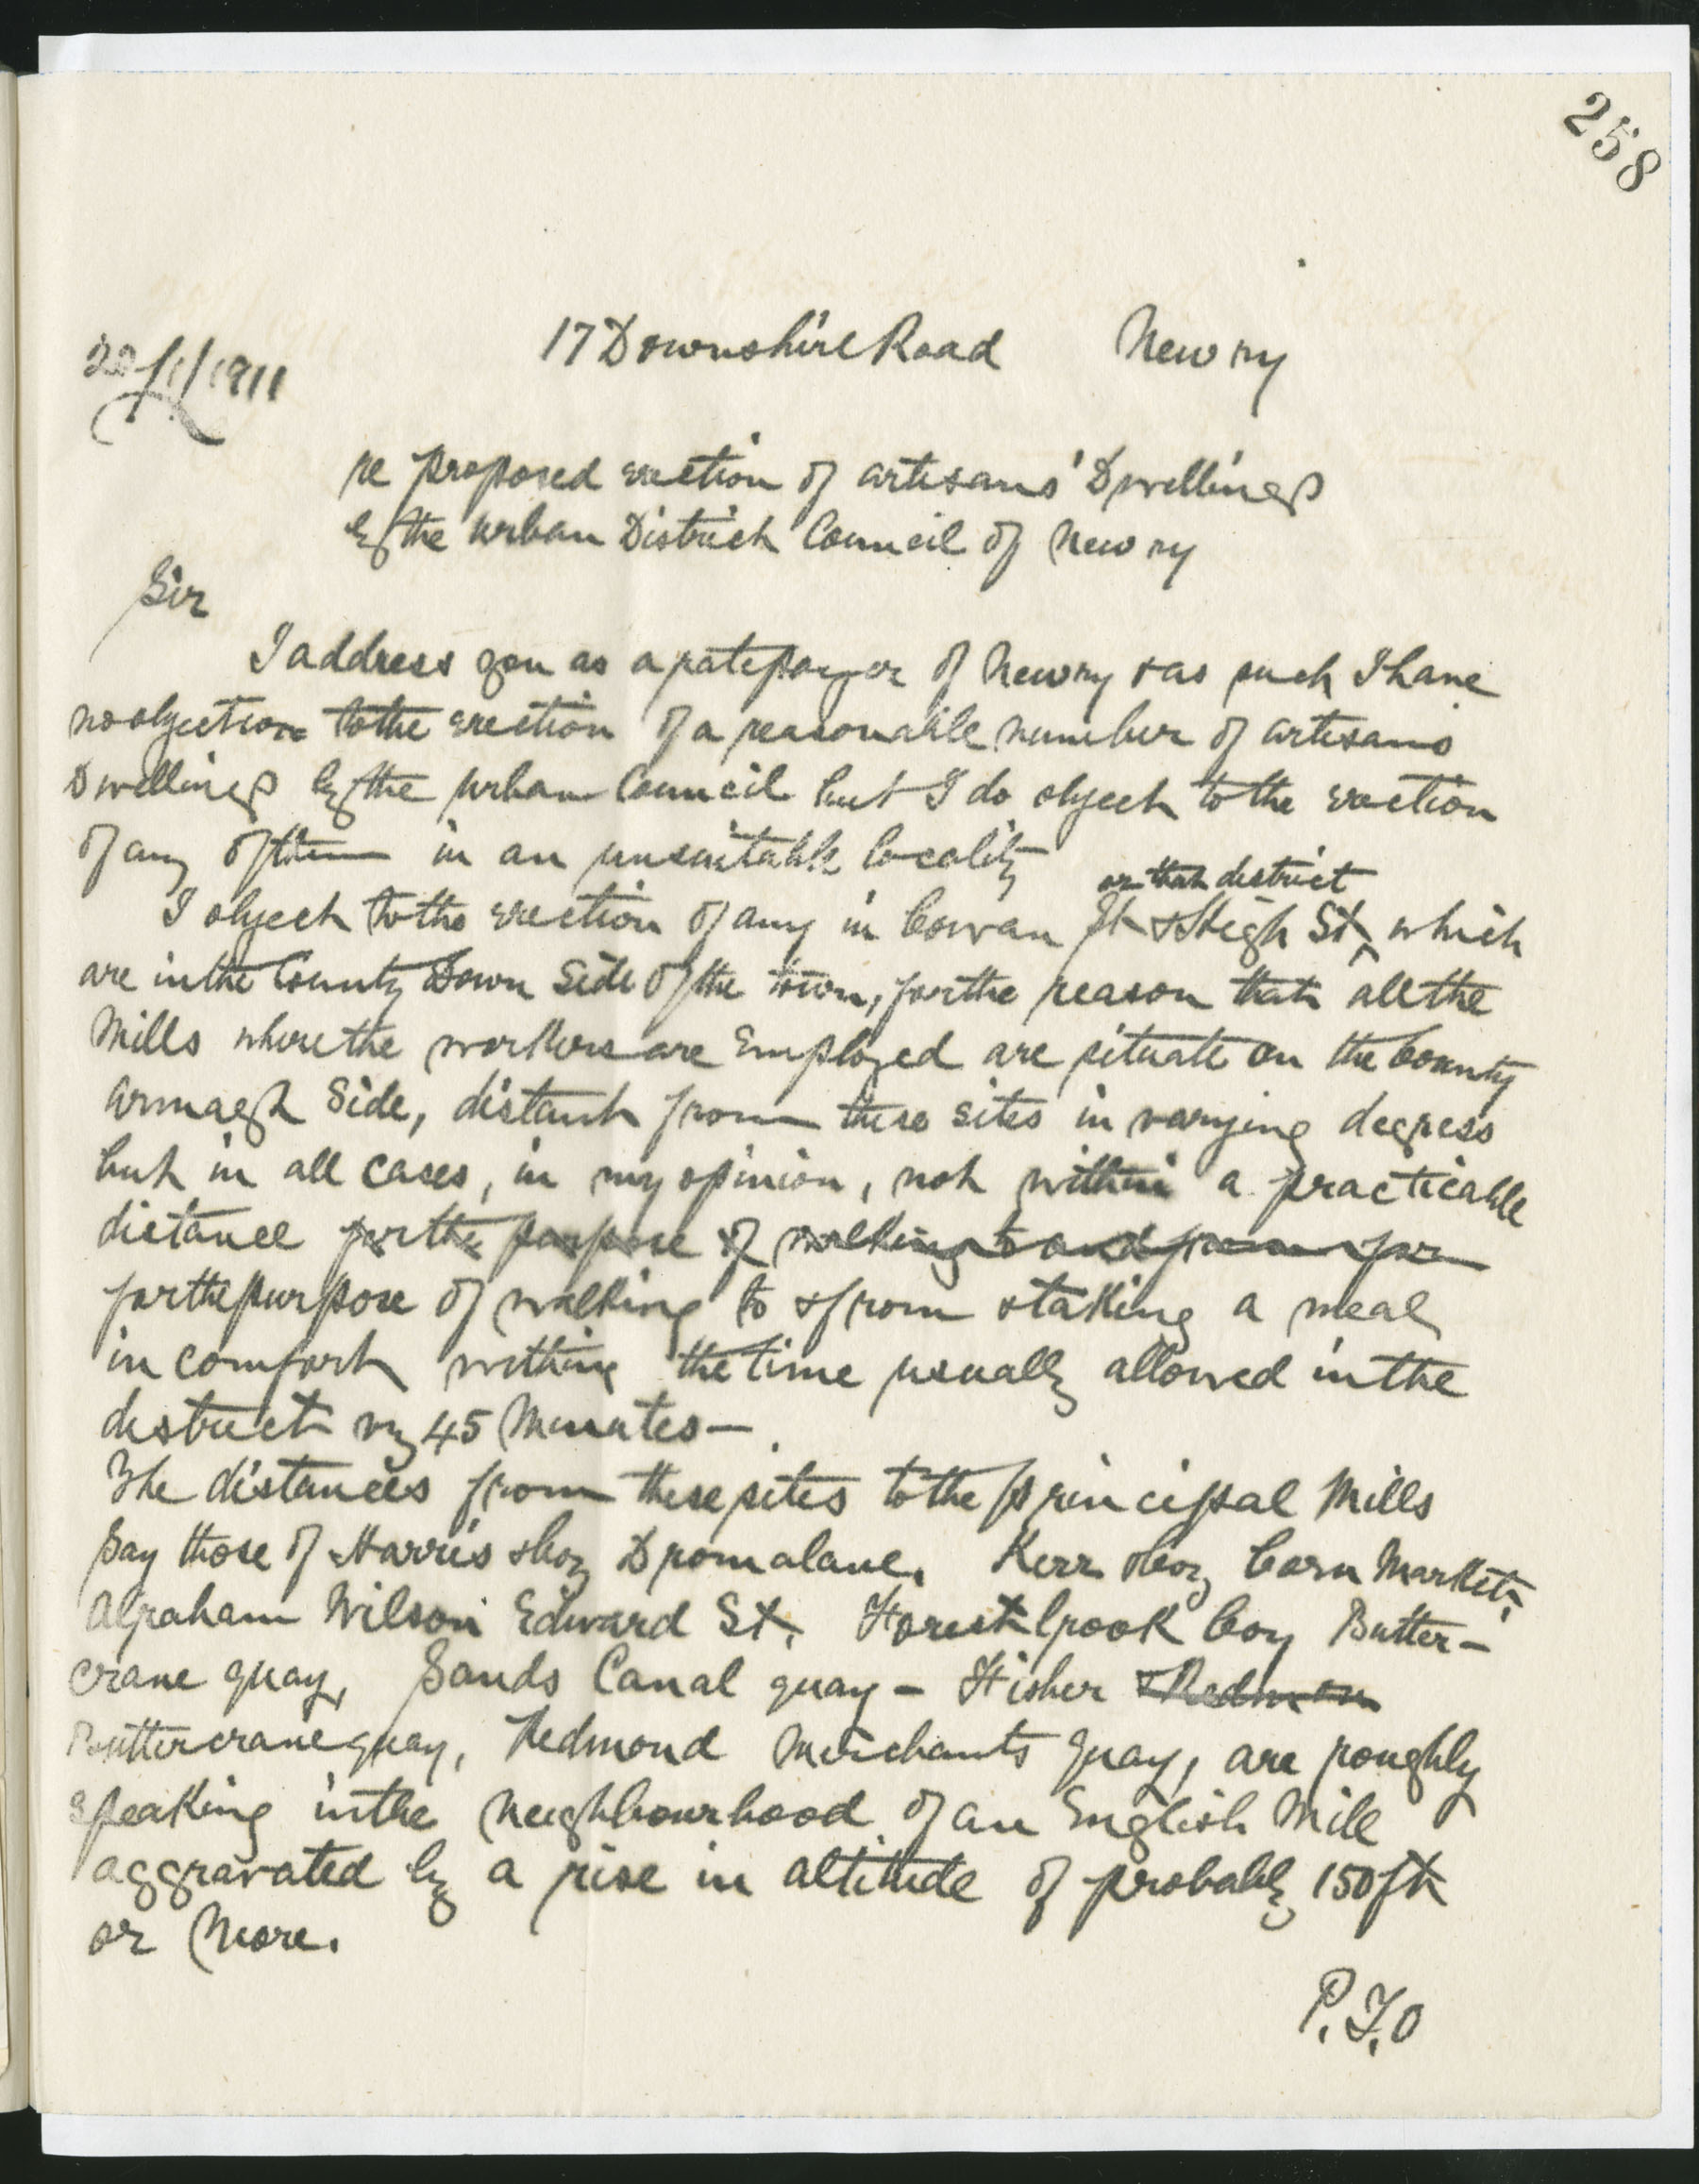 258
17 Downshire Road Newry
22/1/1911
re proposed erection of artisans' Dwellings
by the Urban District Council of Newry
Sir
I address you as a ratepayer of Newry & as such I have
no objection to the erection of a reasonable number of artisans
Dwellings by the Urban Council but I do object to the erection
of any of them in an unsuitable locality
or that district
I object to the erection of any in Cowan St & High St, which
are in the County Down Side of the town, for the reason that all the
Mills where the workers are Employed are situate on the County
Armagh Side, distant from these sites in varying degrees
but in all cases, in my opinion, not within a practicable
distance for the purpose of walking to and from for
for the purpose of walking to & from & taking a meal
in comfort within the time usually allowed in the
district viz 45 Minutes —
The distances from these sites to the principal Mills
Say those of Harris & Coy Dromalane. Kerr & Coy Corn Market,
Abraham Wilson Edward St, Forestbrook Coy Butter-
crane quay, Sands Canal quay - Fisher & Redmon
Buttercrane quay, Redmond Merchants quay, are roughly
speaking in the Neighbourhood of an English Mile
aggravated by a rise in altitude of probably 150 ft
or More.
P.T.O